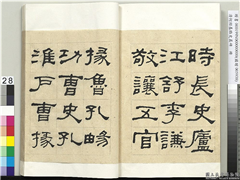 時長史廬
江舒李謙
敬讓五官
掾魯孔畼
功曹史孔
淮戶曹掾
28